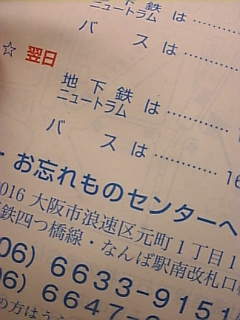 地下鉄は………
ニュートラム
バスは………
☆ 翌日
地下鉄は………
ニュートラム
バスは………16
お忘れものセンターへ
016 大阪市浪速区元町1丁目1
鉄四つ橋線・なんば駅南改札口
06) 6633-9151
06) 6647-
の方は